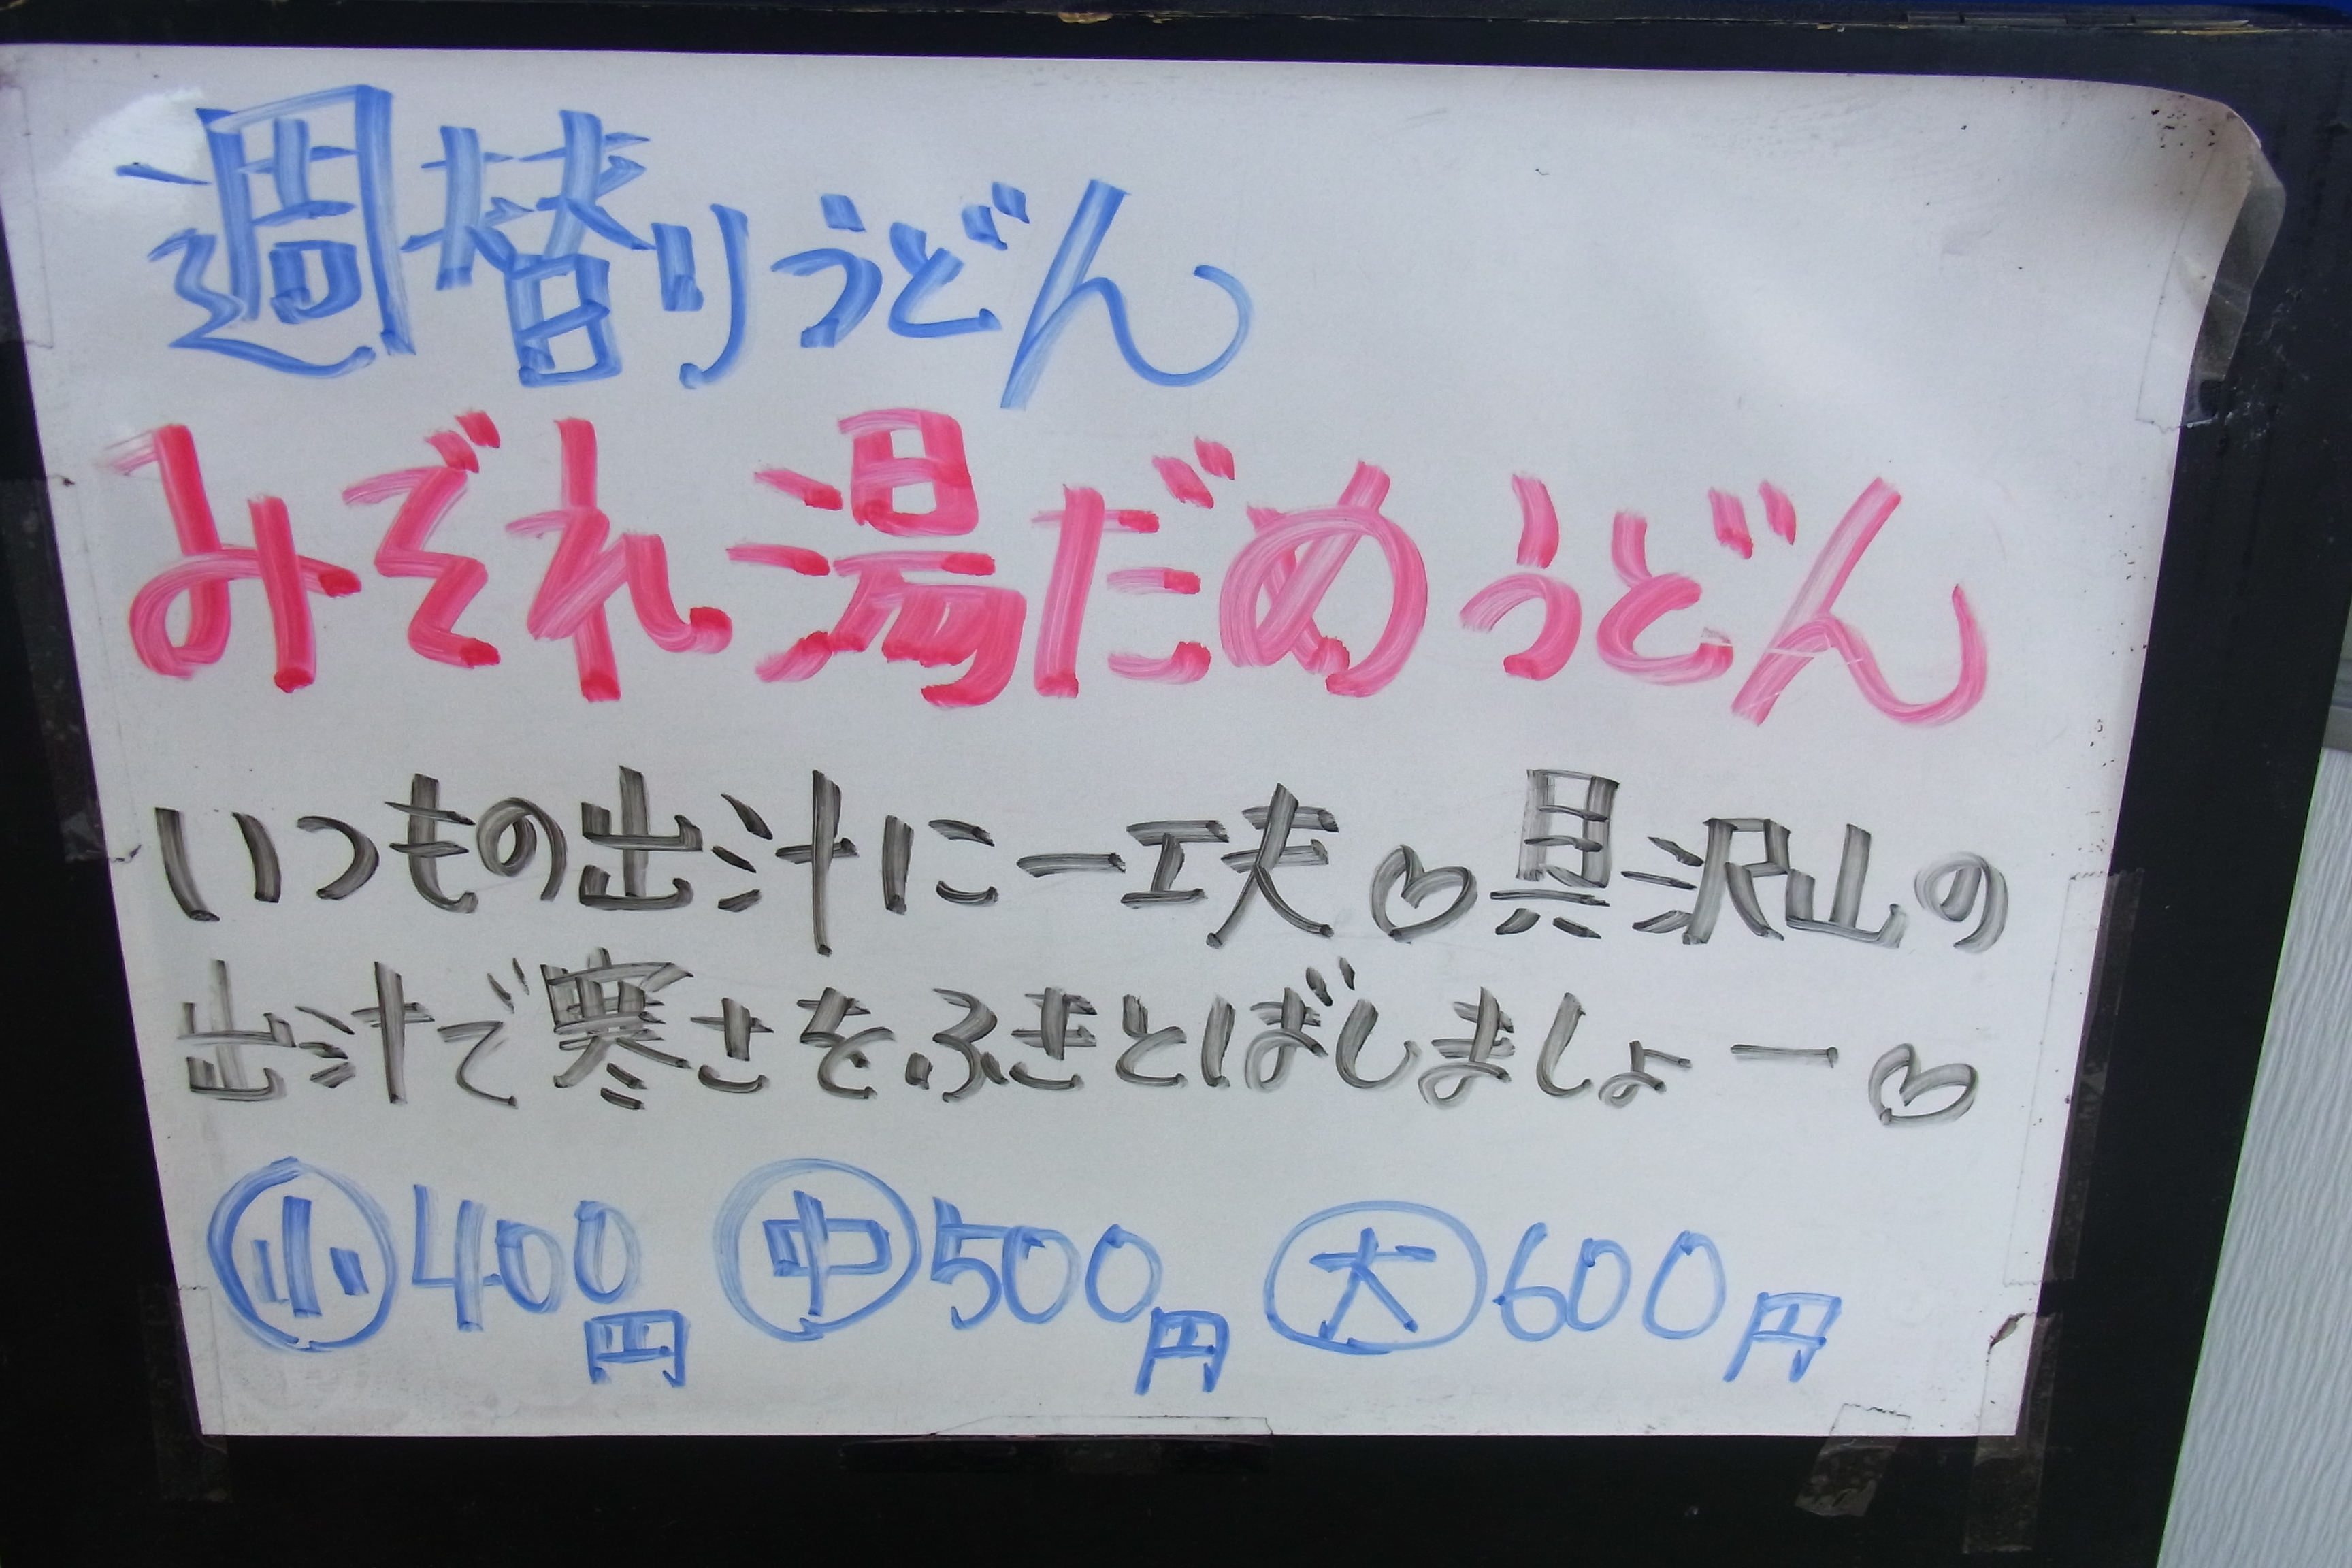 週替りうどん
みぞれ湯だめうどん
いつもの出汁に一工夫♡具沢山の
出汁で寒さをふきとばしましょー♡
㊥小 400円 ㊥ 500円 ㊥大 600円